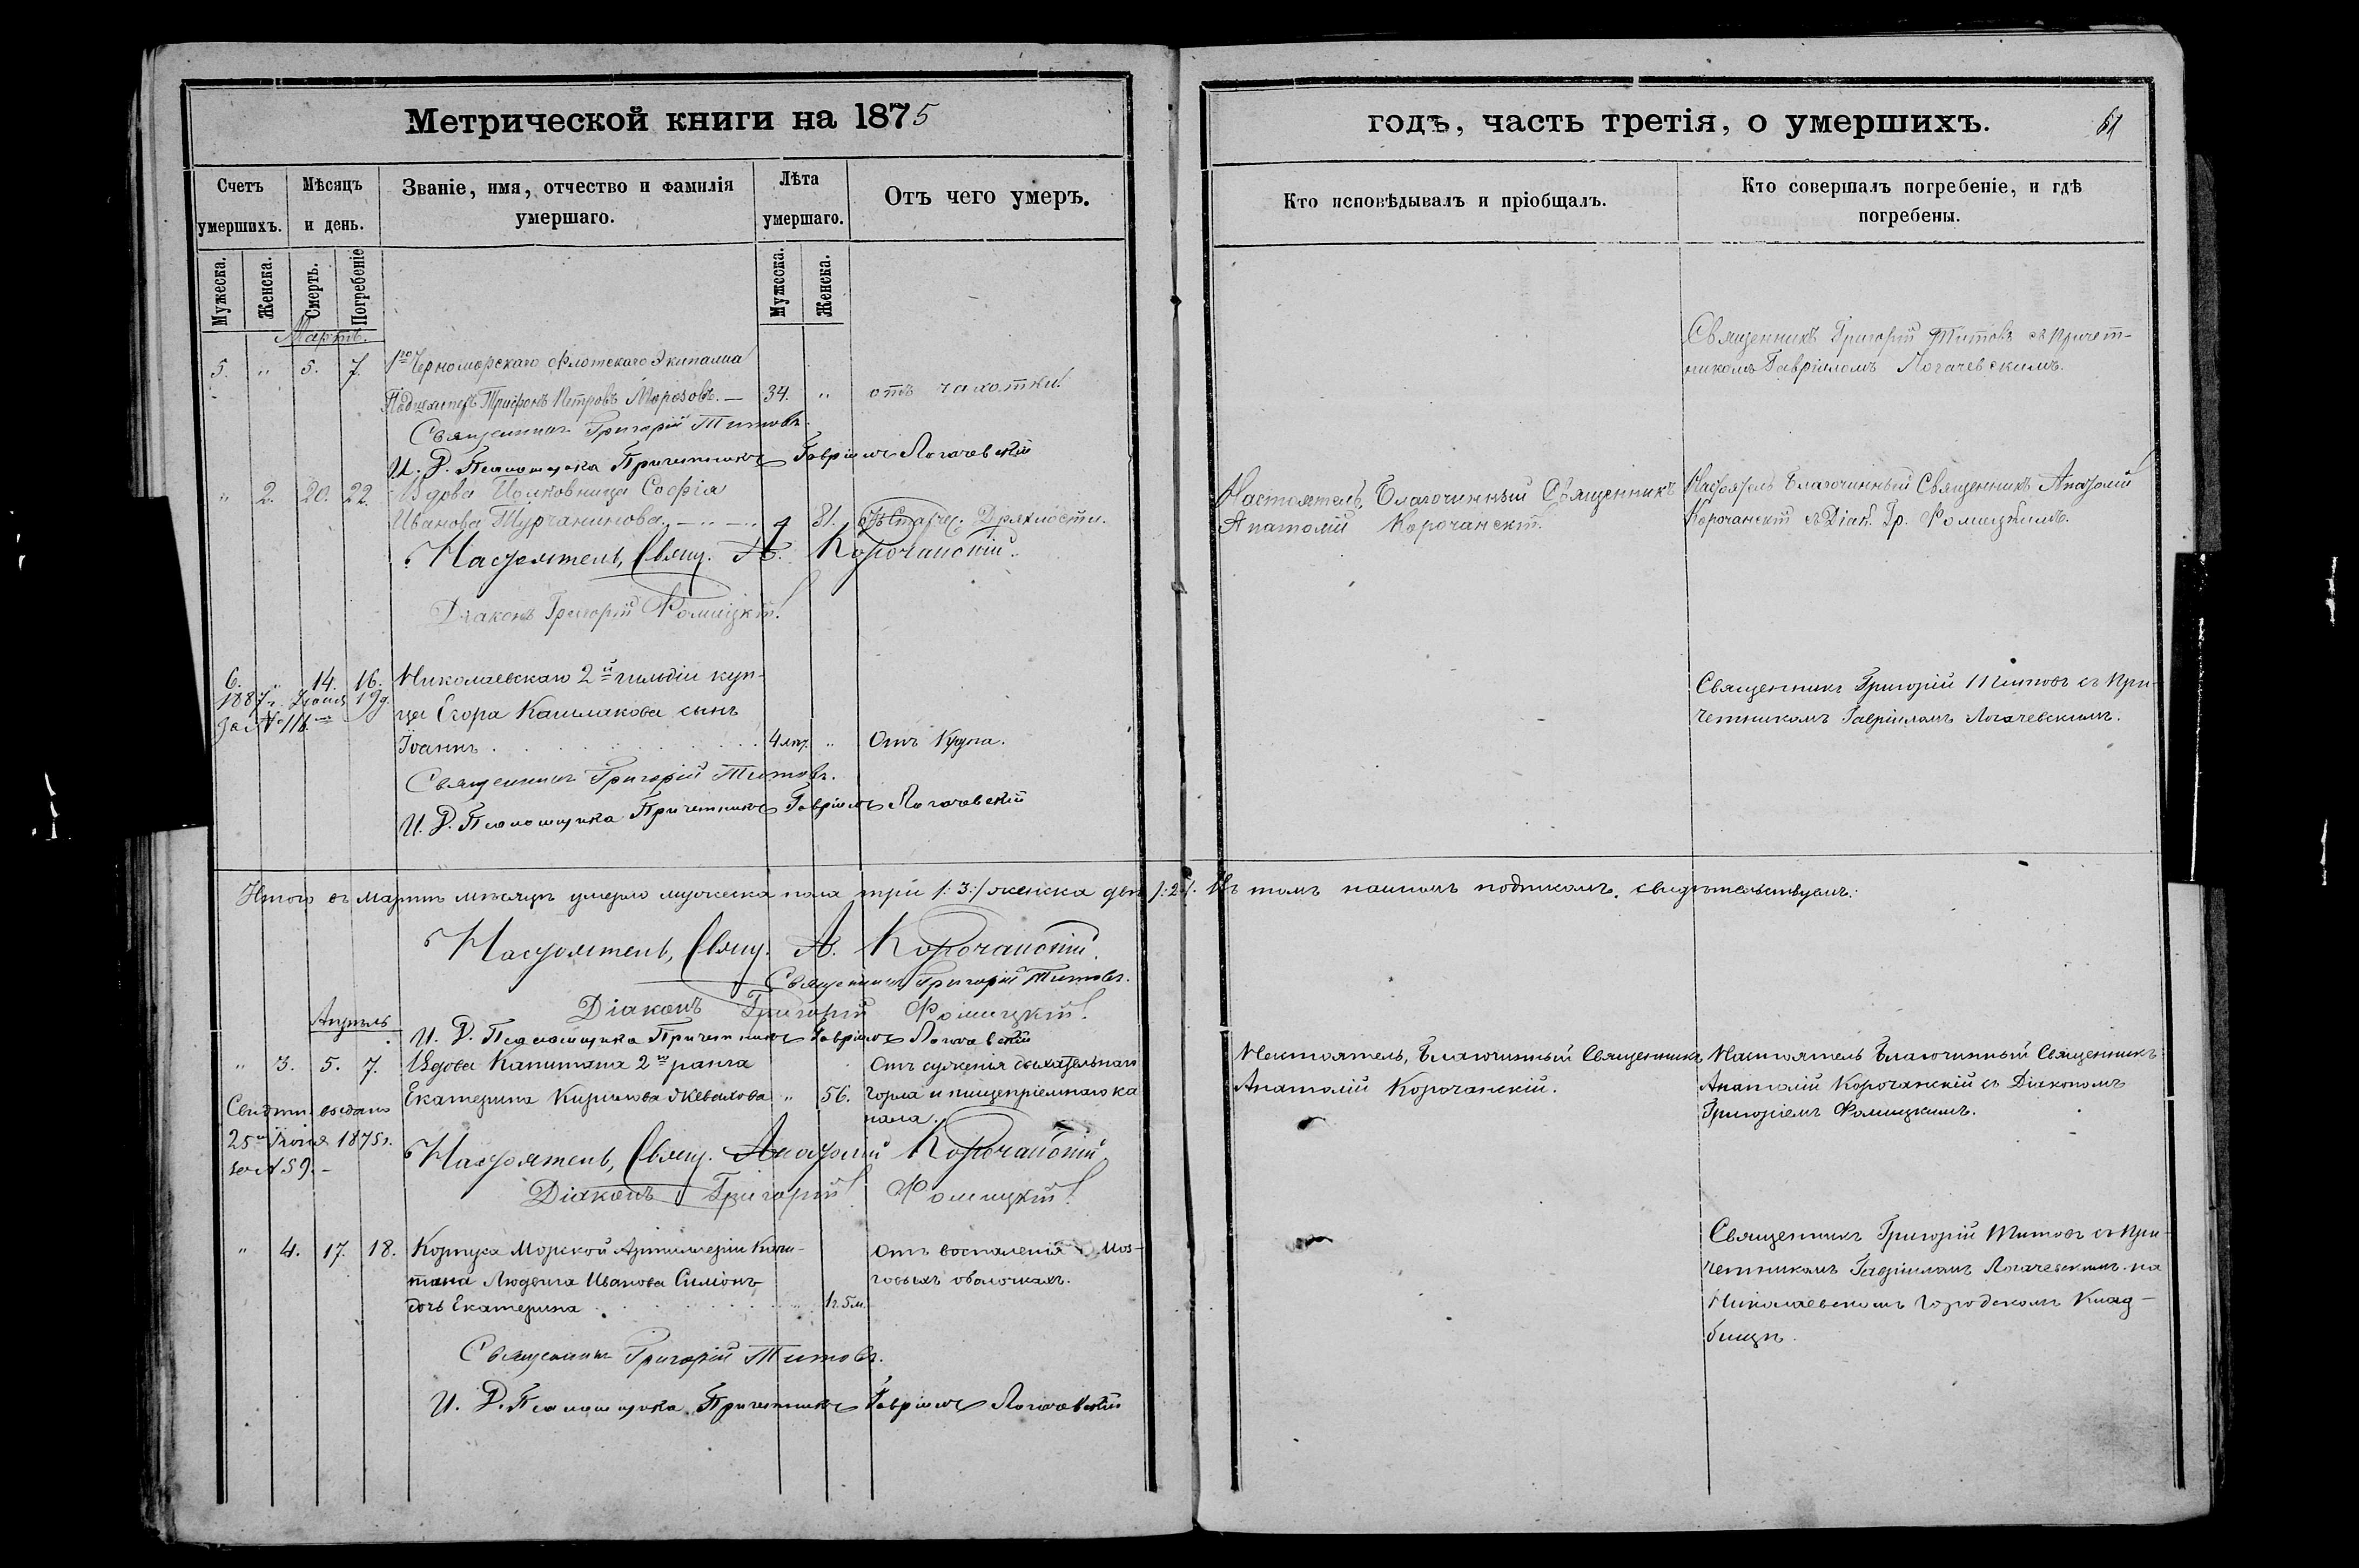 Метрической книги на 1875
годъ, часть третія, о умершихъ.
61
Счетъ умершихъ.
Мѣсяцъ и день.
Званіе, имя, отчество и фамилія умершаго.
Лѣта умершаго.
Отъ чего умеръ.
Кто исповѣдывалъ и пріобщалъ.
Кто совершалъ погребеніе, и гдѣ погребены.
Мужеска.
Женска.
Смерть.
Погребеніе
Мужеска.
Женска.
Мартъ.
5. " 5. 7. 1го Черноморскаго Флотскаго Экипажа
Трифонъ Петровъ Морозовъ. — 34. " отъ чахотки.
Священникъ Григорій Титовъ съ причет-
никомъ Гавріиломъ Логачевскимъ.
Священникъ Григорій Титовъ.
И. Д. Псаломщика Причетникъ Гавріилъ Логачевскій
" 2. 20. 22. Вдова Полковница Софія
Иванова Турчанинова. 81. отъ Старчес. Дряхлости.
Настоятель, Благочинный Священникъ
Анатолій Корочанскій.
Настоятель Благочинный Священникъ Анатолій
Корочанскій съ Діак. Гр. Фомицкимъ.
Настоятель, Свящ. А. Корочанскій.
Діаконъ Григорій Фомицкій.
6. " 14. 16. Николаевскаго 2й гильдіи куп-
1887 г. Іюня 19 д.
за № 116.
ца Егора Кашлакова сынъ
Іоаннъ 4 " Отъ Крупа.
Священникъ Григорій Титовъ съ При-
четникомъ Гавріиломъ Логачевскимъ.
Священникъ Григорій Титовъ.
И. Д. Псаломщика Причетникъ Гавріилъ Логачевскій
Итого въ Мартѣ мѣсяцѣ умерло мужеска пола три /:3:/ женска двѣ /:2:/. Въ томъ нашимъ подписомъ свидѣтельствуемъ:
Настоятель, Свящ. А. Корочанскій.
Священникъ Григорій Титовъ.
Діаконъ Григорій Фомицкій.
И. Д. Псаломщика Причетникъ Гавріилъ Логачевскій
Апрѣль
" 3. 5. 7. Вдова Капитана 2го ранга
Екатерина Кирилова " 56.
Отъ суженія дыхательнаго
горла и пищепріемнаго ка
нала.
Настоятель, Благочинный Священникъ
Анатолій Корочанскій.
Настоятель Благочинный Священникъ
Анатолій Корочанскій съ Діакономъ
Григоріемъ Фомицкимъ.
выдано
25го Іюня 1875 г.
за № 59. —
Настоятель, Свящ. Анатолій Корочанскій
Діаконъ Григорій Фомицкій.
" 4. 17. 18. Корпуса Морской Артиллеріи Капи-
тана Людвига Иванова Симіонъ
дочь Екатерина 1 г. 5 м.
Отъ воспаленія моз-
говыхъ оболочкахъ.
Священникъ Григорій Титовъ съ При-
четникомъ Гавріиломъ Логачевскимъ на
Николаевскомъ Городскомъ Клад-
бищѣ.
Священникъ Григорій Титовъ.
И. Д. Псаломщика Причетникъ Гавріилъ Логачевскій